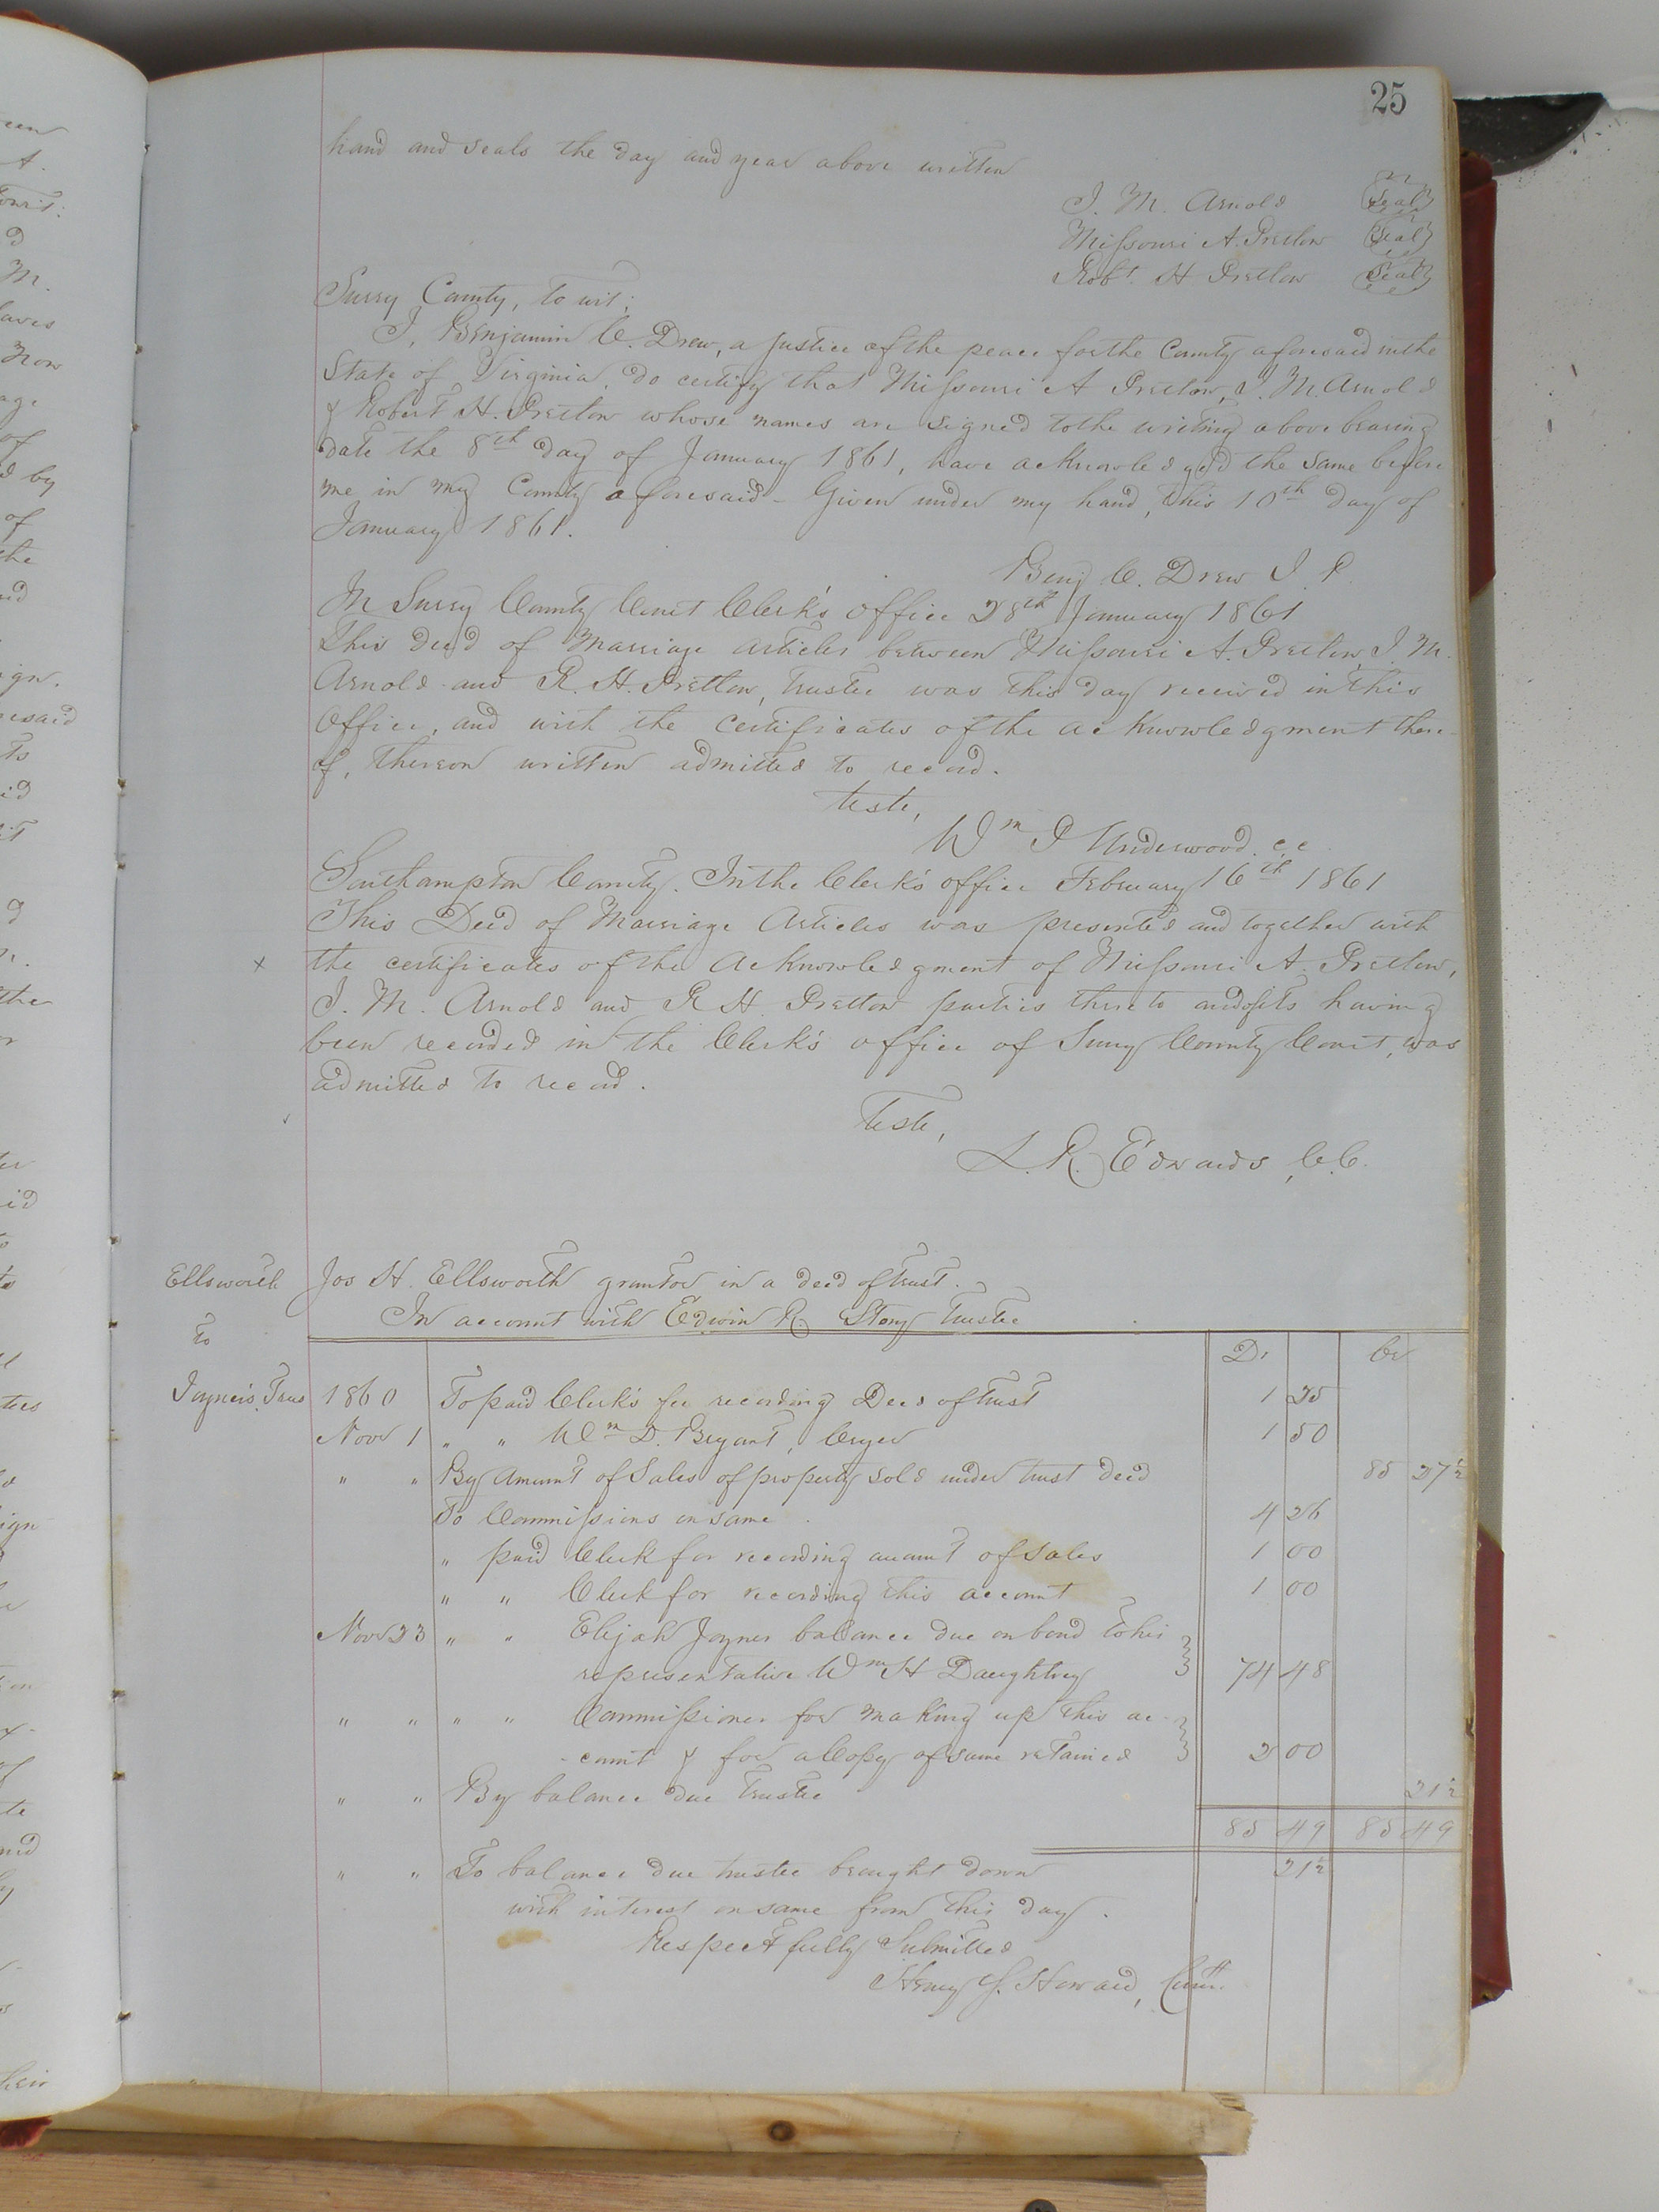 25
hand and seals the day and year above written
J. M. Arnold Seal
Missouri A. Pretlow Seal
Robt. H Pretlow Seal
Surry County, to wit:
I, Benjamin C. Drew, a justice of the peace for the County aforesaid in the
State of Virginia, do certify that Missouri A Pretlow, J. M. Arnold
& Robert H. Pretlow whose names are signed to the writing above bearing
date the 8th day of January 1861, have acknowledged the same before
me in my County aforesaid - Given under my hand, this 10th day of
January 1861.
Benj C. Drew J. P.
In Surry County Court Clerk's office 28th January 1861
This deed of Marriage articles between Missouri A. Pretlow, J. M.
Arnold and R. H. Pretlow, trustee was this day received in this
Office, and with the certificates of the acknowledgment there-
of, thereon written admitted to record.
Teste,
Wm P Underwood. cc
Southampton County. In the Clerk's office February 16th 1861
This Deed of Marriage Articles was presented and together with
x the certificates of the acknowledgment of Missouri A. Pretlow,
J. M. Arnold and R H Pretlow parties thereto and of its having
been recorded in the Clerk's office of Surry County Court, was
admitted to record.
Teste,
L. R. Edwards, C.C.
Ellsworth Jos H. Ellsworth grantor in a deed of trust.
to In account with Edwin R Story Trustee
Dr Cr
Joyner's Trus 1860 To paid Clerk's fee recording Deed of trust 1 25
Novr 1 " " Wm D. Bryant, Cryer 1 50
" " By Amount of Sales of property sold under trust deed 85 27½
To Commissions on same. 4 26
" paid Clerk for recording account of sales 1 00
" " Clerk for recording this account 1 00
Novr 23 " " Elijah Joyner balance due on bond to his
representative Wm H Daughtrey 74 48
" " " " Commissioner for making up this ac-
-count & for a Copy of same retained 2 00
" " By balance due trustee 21½
85 49 85 49
" " To balance due trustee brought down 21½
with interest on same from this day.
Respectfully Submitted
Henry S. Howard, Comr.